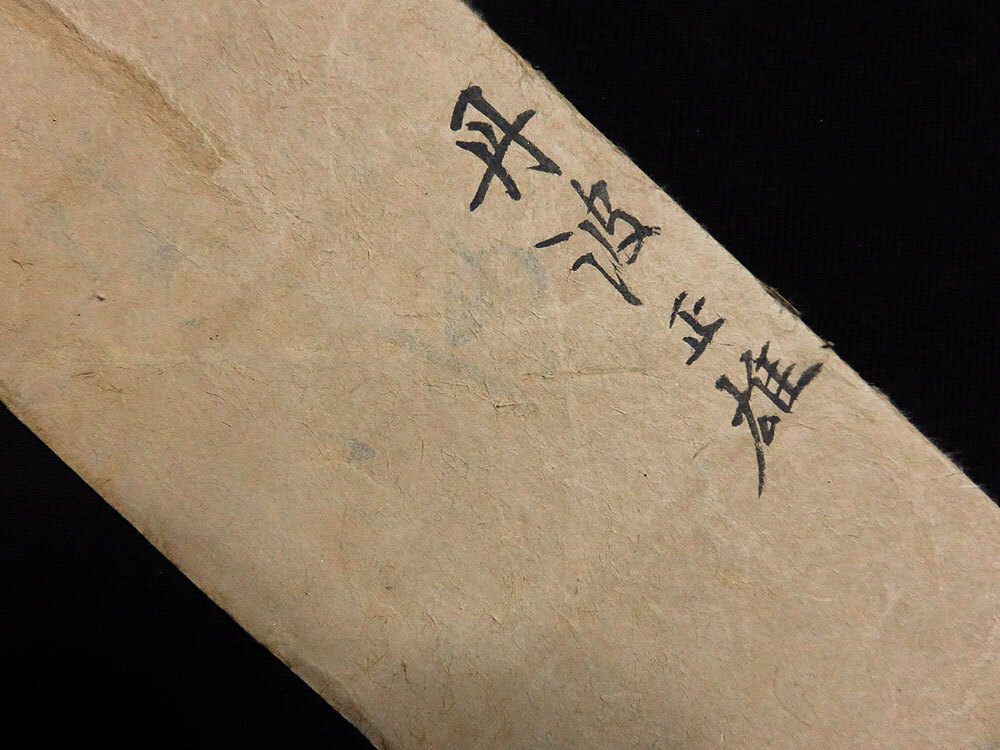 丹波正雄